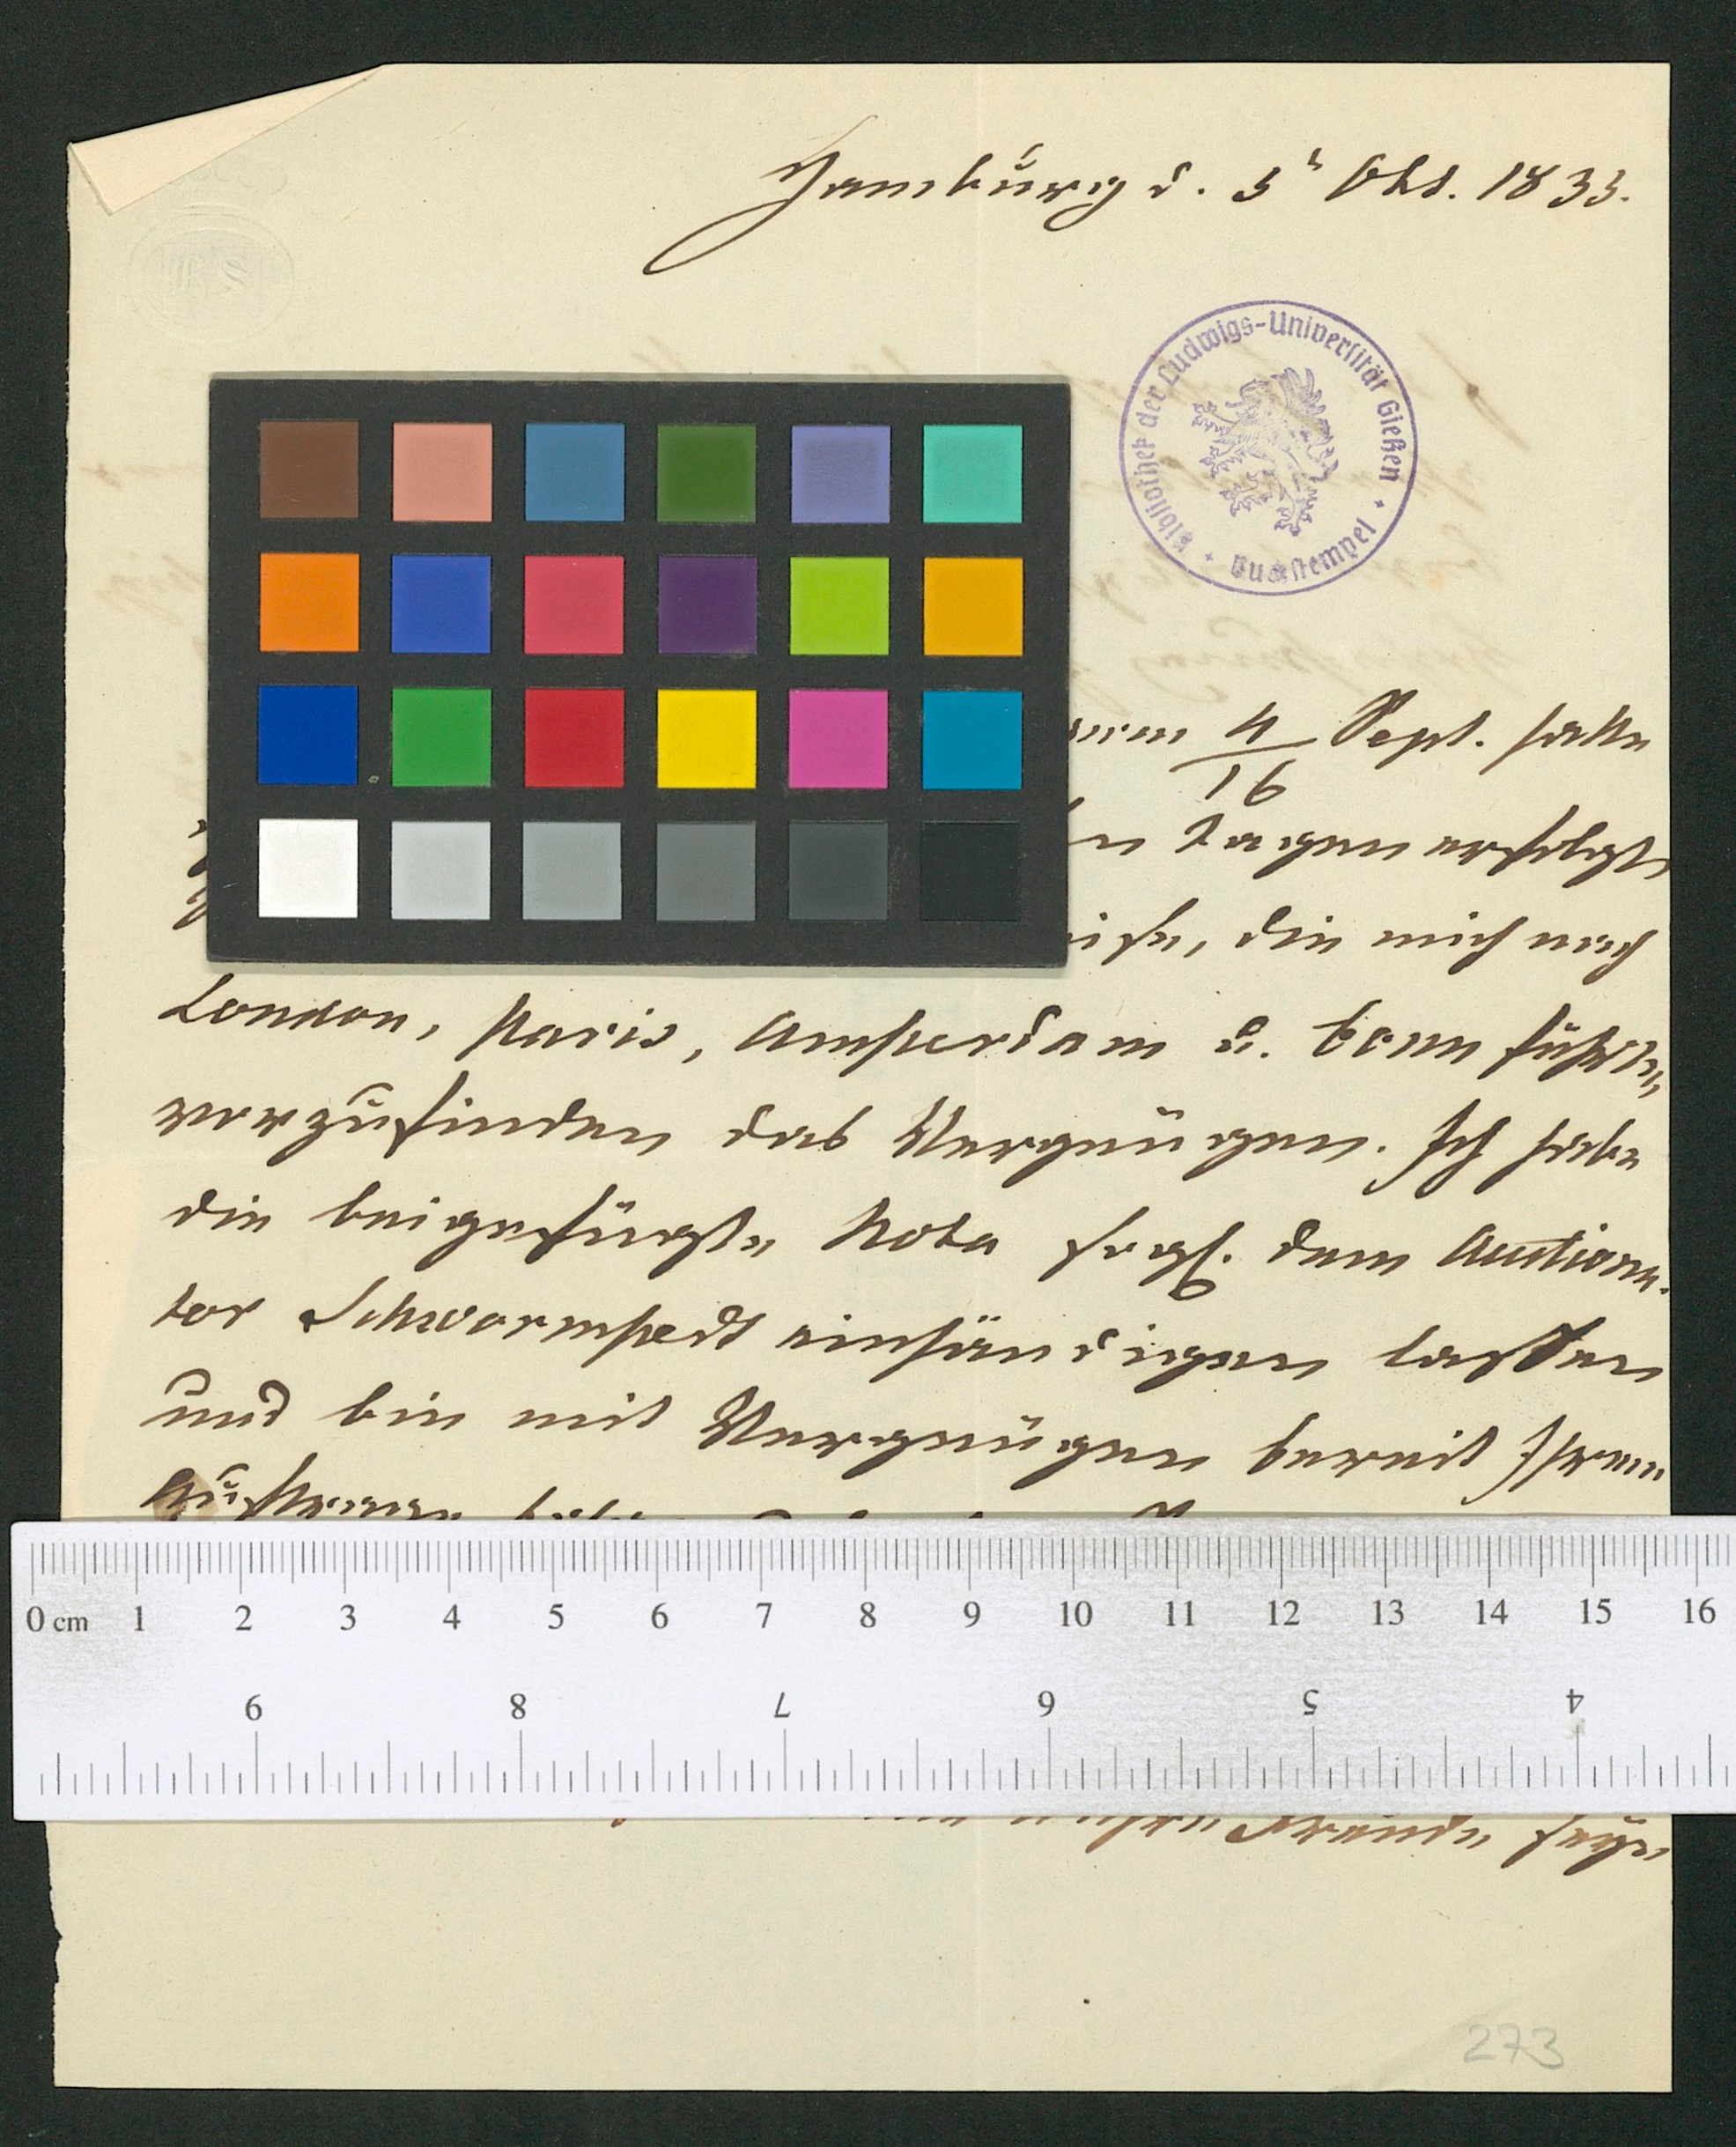 Hamburg d. 5t Okt. 1833.
Bibliothek der Ludwigs-Universität Gießen
4/16 Sept. hatte
Tagen erfolgte
die mich nach
London, Paris, Amsterdam u. Bonn führte,
vorzufinden das Vergnügen. Ich habe
die beigefügte Nota sogl. dem Auctiona-
tor Schwormstedt einhändigen lassen
und bin mit Vergnügen bereit Ihrem
0 cm 1 2 3 4 5 6 7 8 9 10 11 12 13 14 15 16
9 8 7 6 5 4
273